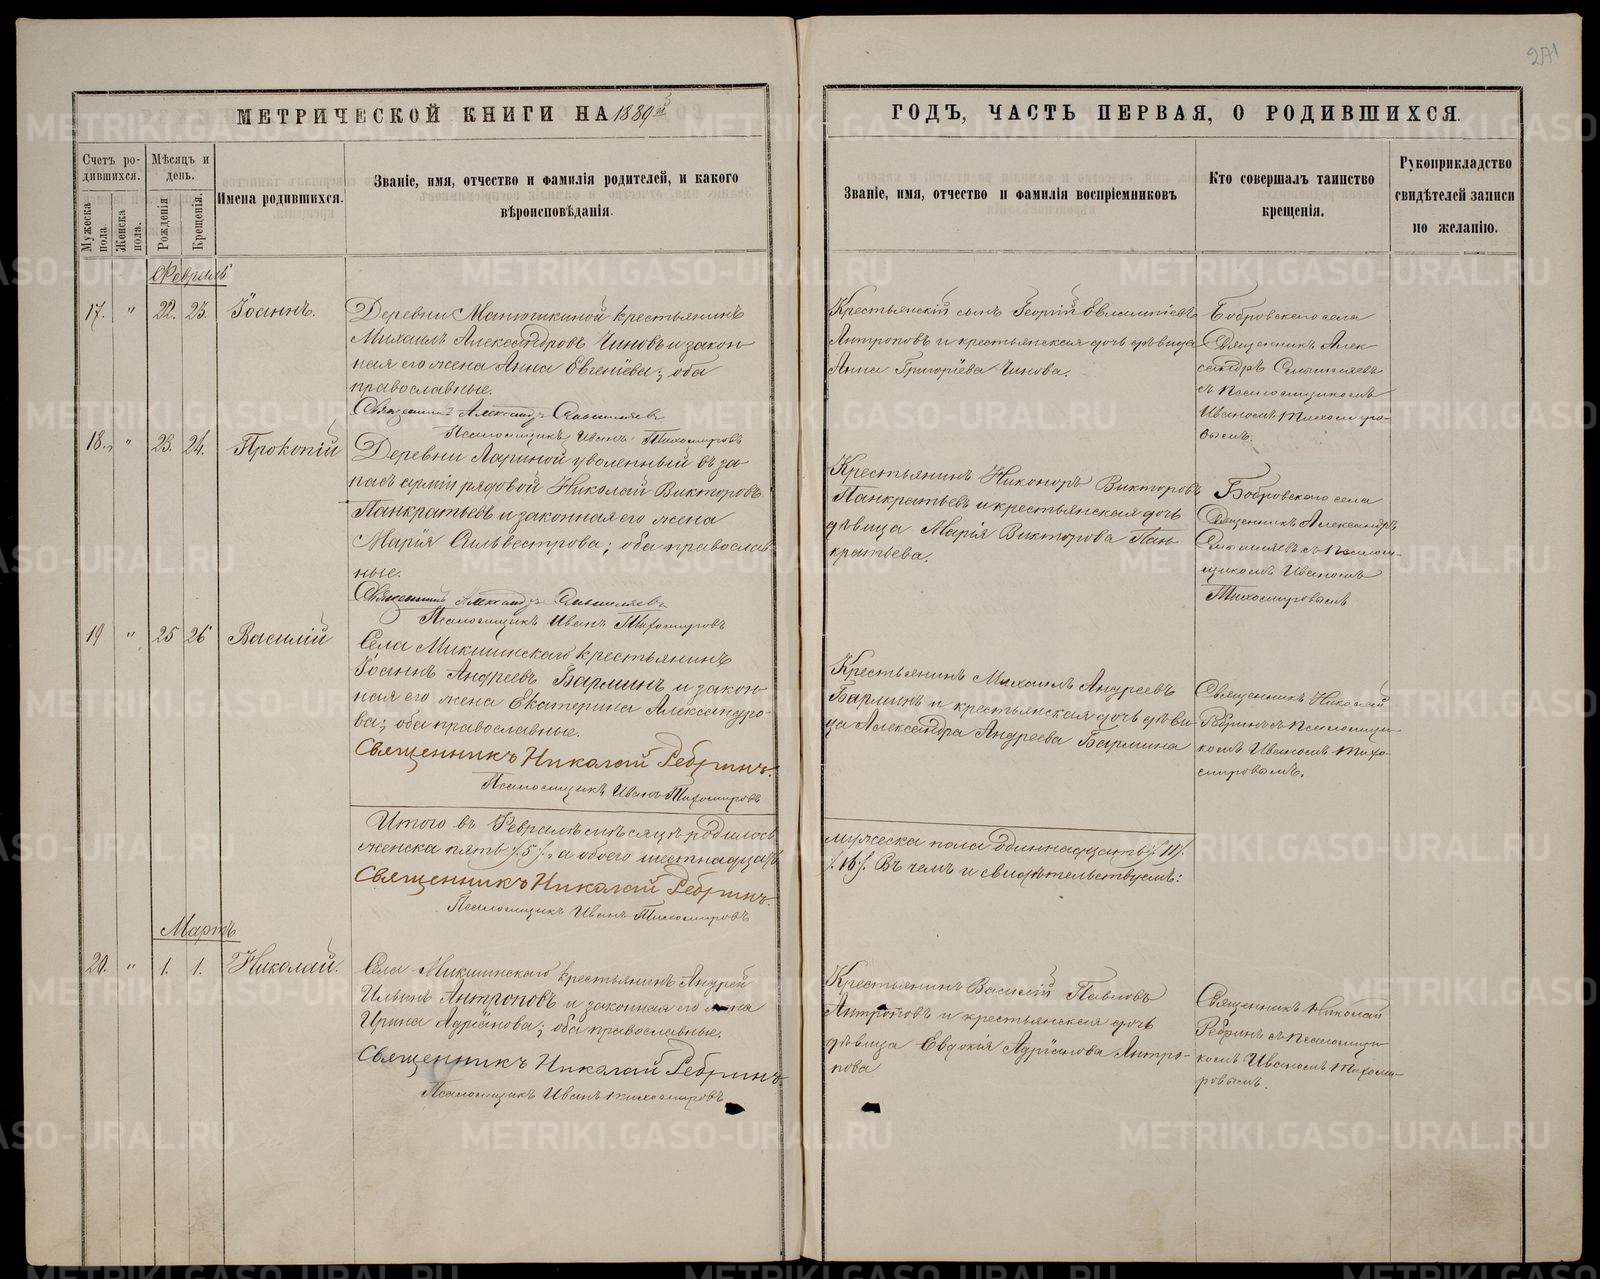 271
МЕТРИЧЕСКОЙ КНИГИ НА 1889й
ГОДЪ, ЧАСТЬ ПЕРВАЯ, О РОДИВШИХСЯ.
Счетъ ро-
дившихся.
Мужеска пола.
Женска пола.
Мѣсяцъ и
день.
Рожденія
Крещенія.
Имена родившихся.
Званіе, имя, отчество и фамилія родителей, и какого
вѣроисповѣданія.
Званіе, имя, отчество и фамилія воспріемниковъ
Кто совершалъ таинство
крещенія.
Рукоприкладство
свидѣтелей записи
по желанію.
Февраль
17. " 22. 23. Іоаннъ.
Деревни Манюшкиной крестьянинъ
Михаилъ Александровъ Чиновъ и закон-
ная его жена Анна Евгеніева; оба
православные.
Священникъ Александръ
Псаломщикъ Иванъ Тихомировъ
Крестьянскій сынъ Георгій Евлампіевъ
Антроповъ и крестьянская дочь дѣвица
Анна Григоріева Чинова.
Бобровскаго села
Священникъ Алек
сандръ
съ Псаломщикомъ
Иваномъ Тихомиро-
вымъ.
18. " 23. 24. Прокопій
Деревни Лариной уволенный въ за
пасъ арміи рядовой Николай Викторовъ
Панкратьевъ и законная его жена
Марія Сильвестрова; оба православ
ные.
Священникъ Александръ
Псаломщикъ Иванъ Тихомировъ
Крестьянинъ Никоноръ Викторовъ
Панкратьевъ и крестьянская дочь
дѣвица Марія Викторова Пан-
кратьева.
Бобровскаго села
Священникъ Александръ
съ Псалом-
щикомъ Иваномъ
Тихомировымъ
19 " 25 26 Василій
Села Микшинскаго крестьянинъ
Іоаннъ Андреевъ Барминъ и закон-
ная его жена Екатерина Александро-
ва; оба православные.
Священникъ Николай Ребринъ.
Псаломщикъ Иванъ Тихомировъ
Крестьянинъ Михаилъ Андреевъ
Барминъ и крестьянская дочь дѣви-
ца Александра Андреева Бармина
Священникъ Николай
Ребринъ съ Псаломщи-
комъ Иваномъ Тихо-
мировымъ.
Итого въ Февралѣ мѣсяцѣ родилось
мужеска пола одиннадцать /.11/.
женска пять /.5/., а обоего шестнадцать
/.16/. Въ чемъ и свидѣтельствуемъ:
Священникъ Николай Ребринъ.
Псаломщикъ Иванъ Тихомировъ
Мартъ
20. " 1. 1. Николай.
Села Микшинскаго крестьянинъ Андрей
Ильинъ Антроповъ и законная его жена
Ирина Адріанова; оба православные.
Священникъ Николай Ребринъ.
Псаломщикъ Иванъ Тихомировъ
Крестьянинъ Василій Павловъ
Антроповъ и крестьянская дочь
дѣвица Евдокія Адріанова Антро-
пова
Священникъ Николай
Ребринъ съ Псаломщи-
комъ Иваномъ Тихоми-
ровымъ.
METRIKI.GASO-URAL.RU